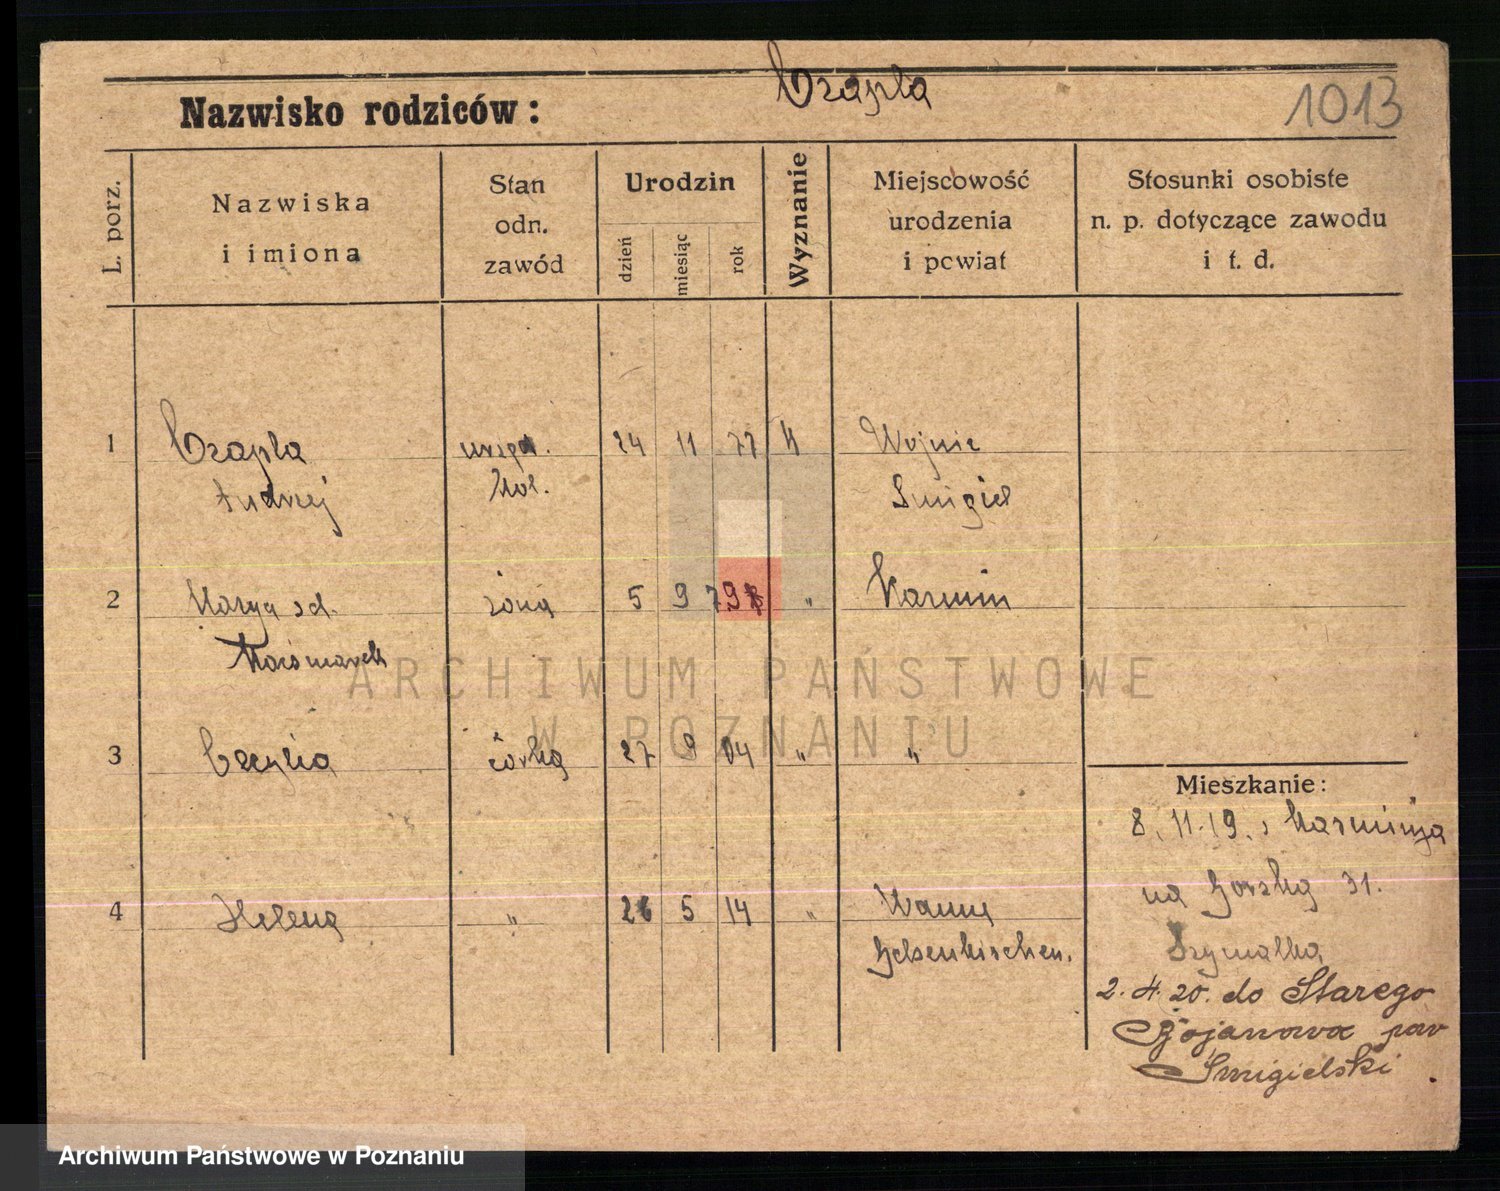 Czapla
1013
Nazwisko rodziców:
L. porz.
Nazwiska
i imiona
Stan
odn.
zawód
Urodzin
dzień
miesiąc
rok
Wyznanie
Miejscowość
urodzenia
i powiat
Stosunki osobiste
n. p. dotyczące zawodu
i t. d.
1 Czapla urzęd. 24 11 77 K Wojnic
Andrzej kol. Śmigiel
2 Marya zd. żona 5 9 " Karmin
3 córka 27 9 04 " "
4 Helena " 26 5 14 " Wanny
Gelsenkirchen.
Mieszkanie:
8. 11. 19. z Karmina
na Górską 31.
Szymalka
2. 4. 20. do Starego
Bojanowa pow
Śmigielski
ARCHIWUM PAŃSTWOWE
W POZNANIU
Archiwum Państwowe w Poznaniu